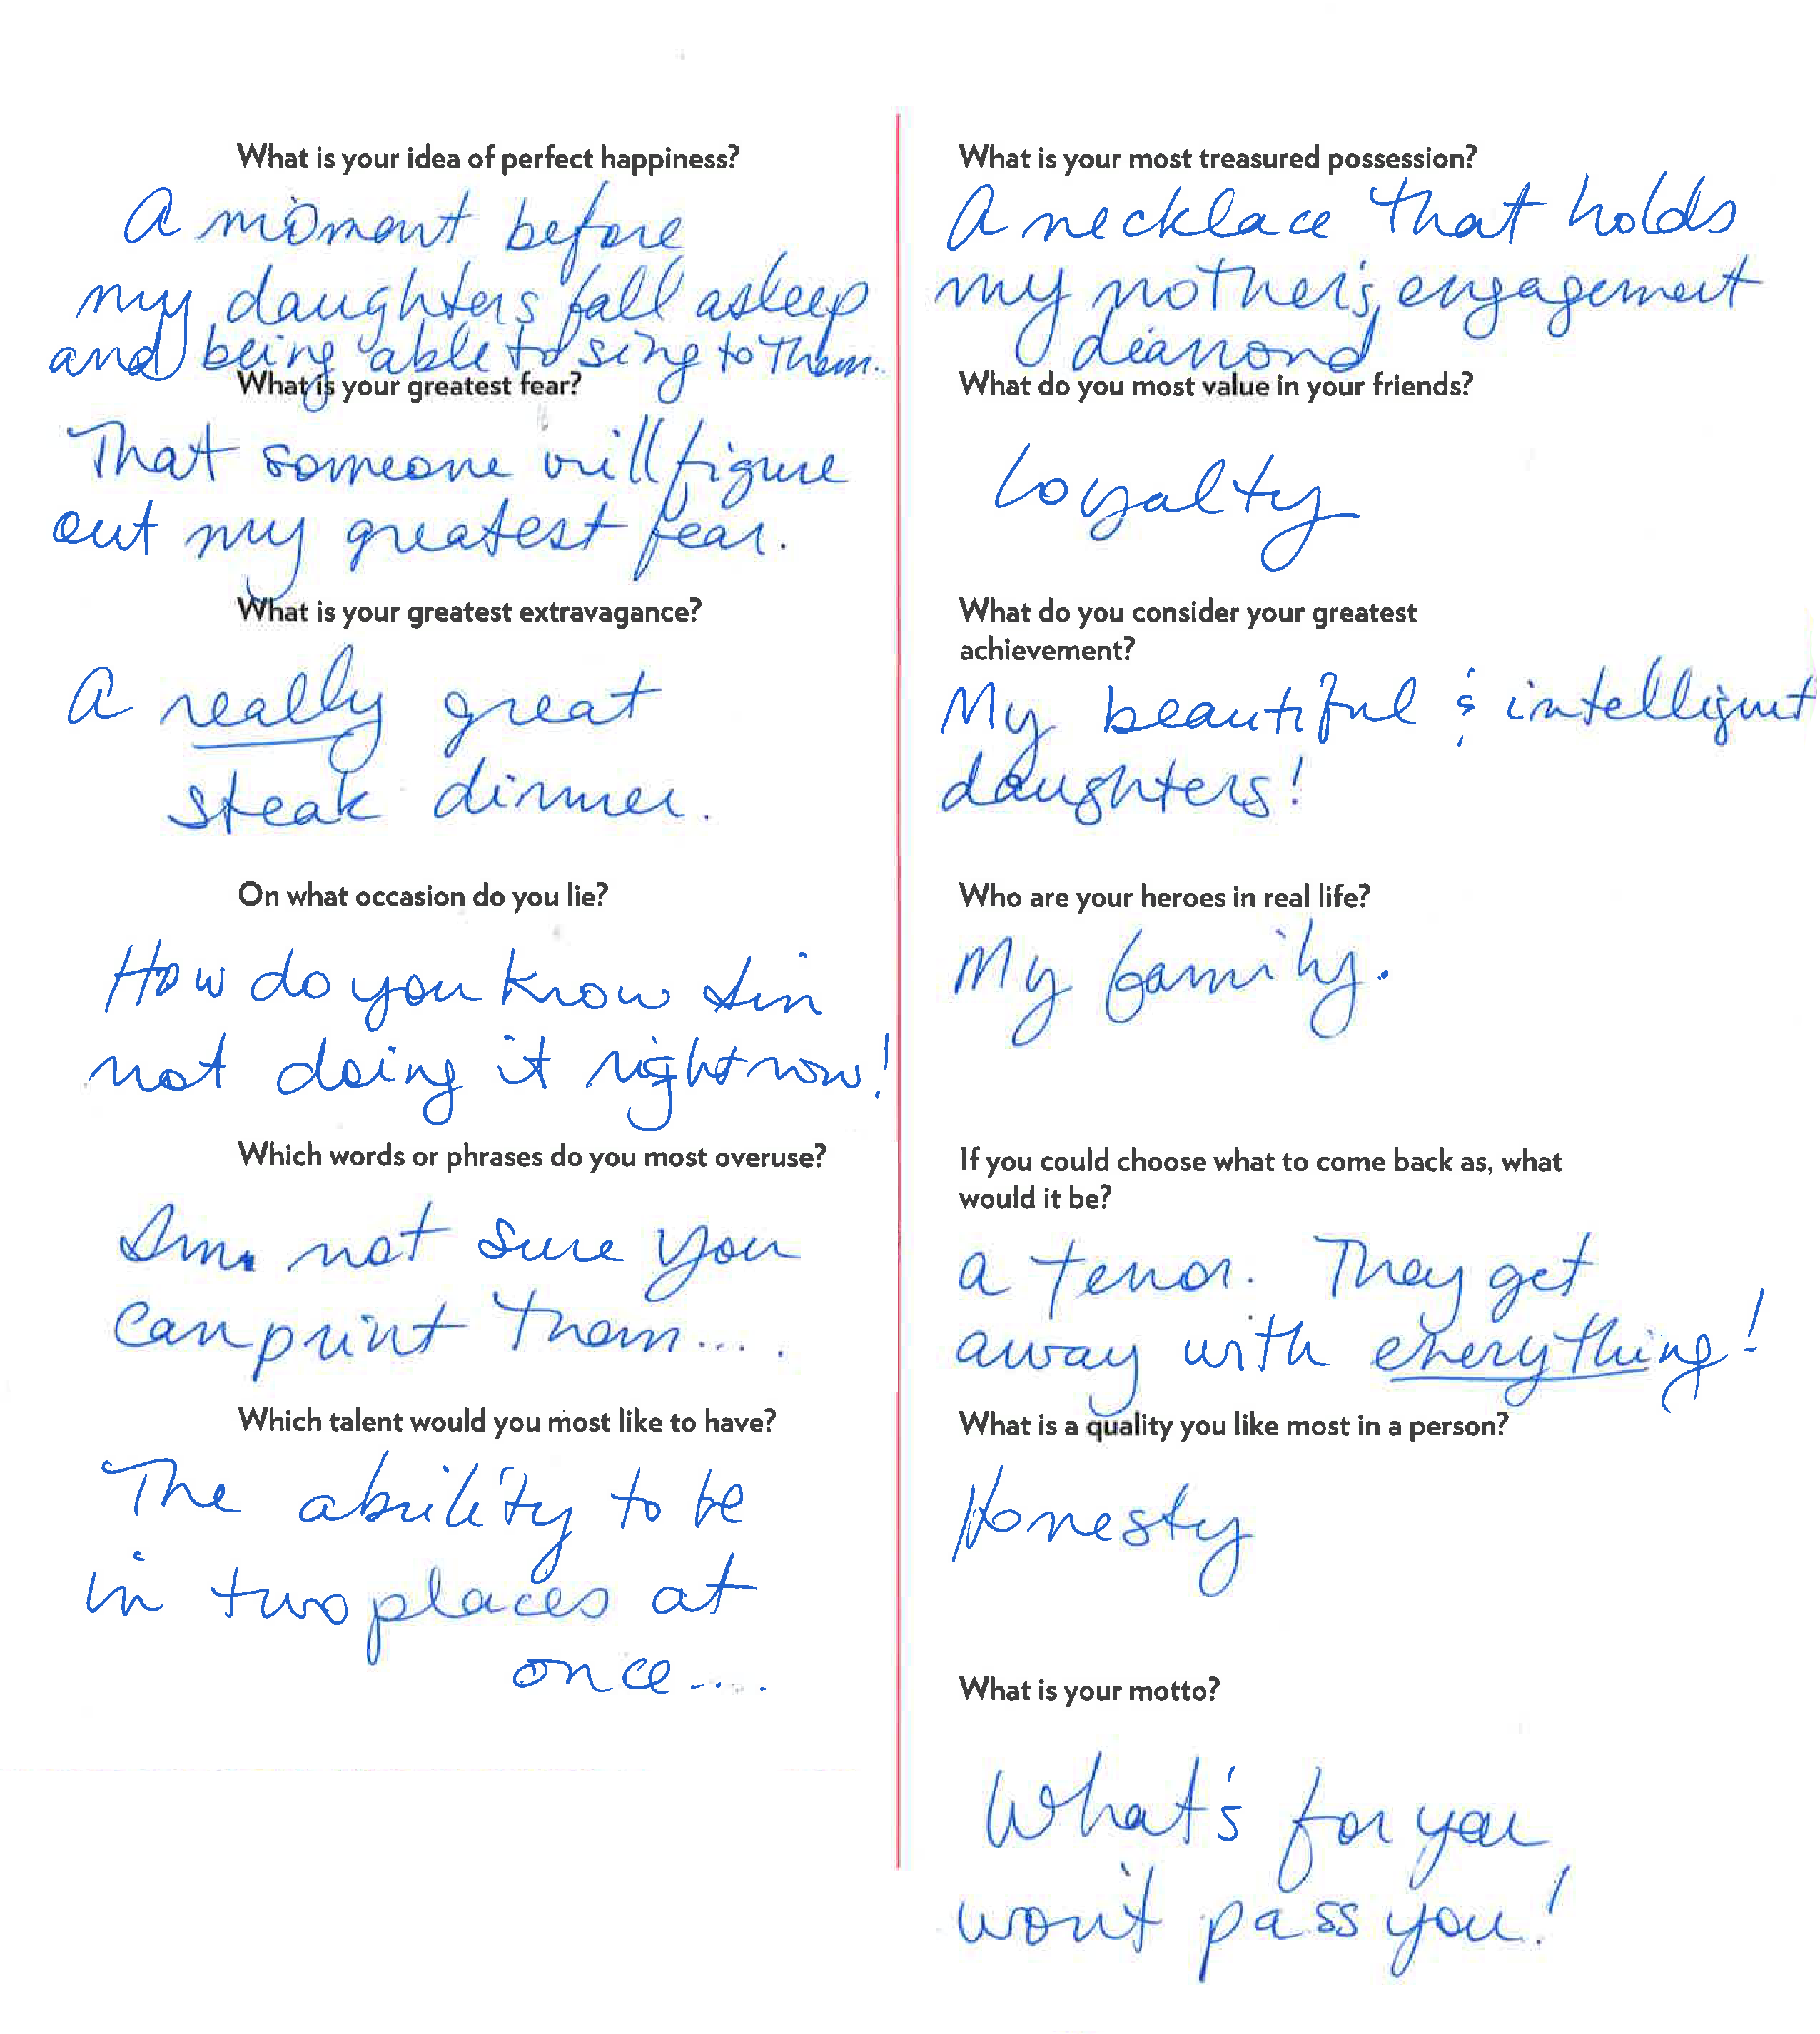 What is your idea of perfect happiness?
A moment before
my daughters fall asleep
and being able to sing to them.
What is your greatest fear?
That someone will figure
out my greatest fear.
What is your greatest extravagance?
A really great
steak dinner.
On what occasion do you lie?
How do you know I'm
not doing it right now!
Which words or phrases do you most overuse?
I'm not sure you
can print them....
Which talent would you most like to have?
The ability to be
in two places at
once....
What is your most treasured possession?
A necklace that holds
my mother's engagement
diamond
What do you most value in your friends?
Loyalty
What do you consider your greatest
achievement?
My beautiful & intelligent
daughters!
Who are your heroes in real life?
My family.
If you could choose what to come back as, what
would it be?
a tenor. They get
away with everything!
What is a quality you like most in a person?
Honesty
What is your motto?
What's for you
won't pass you!